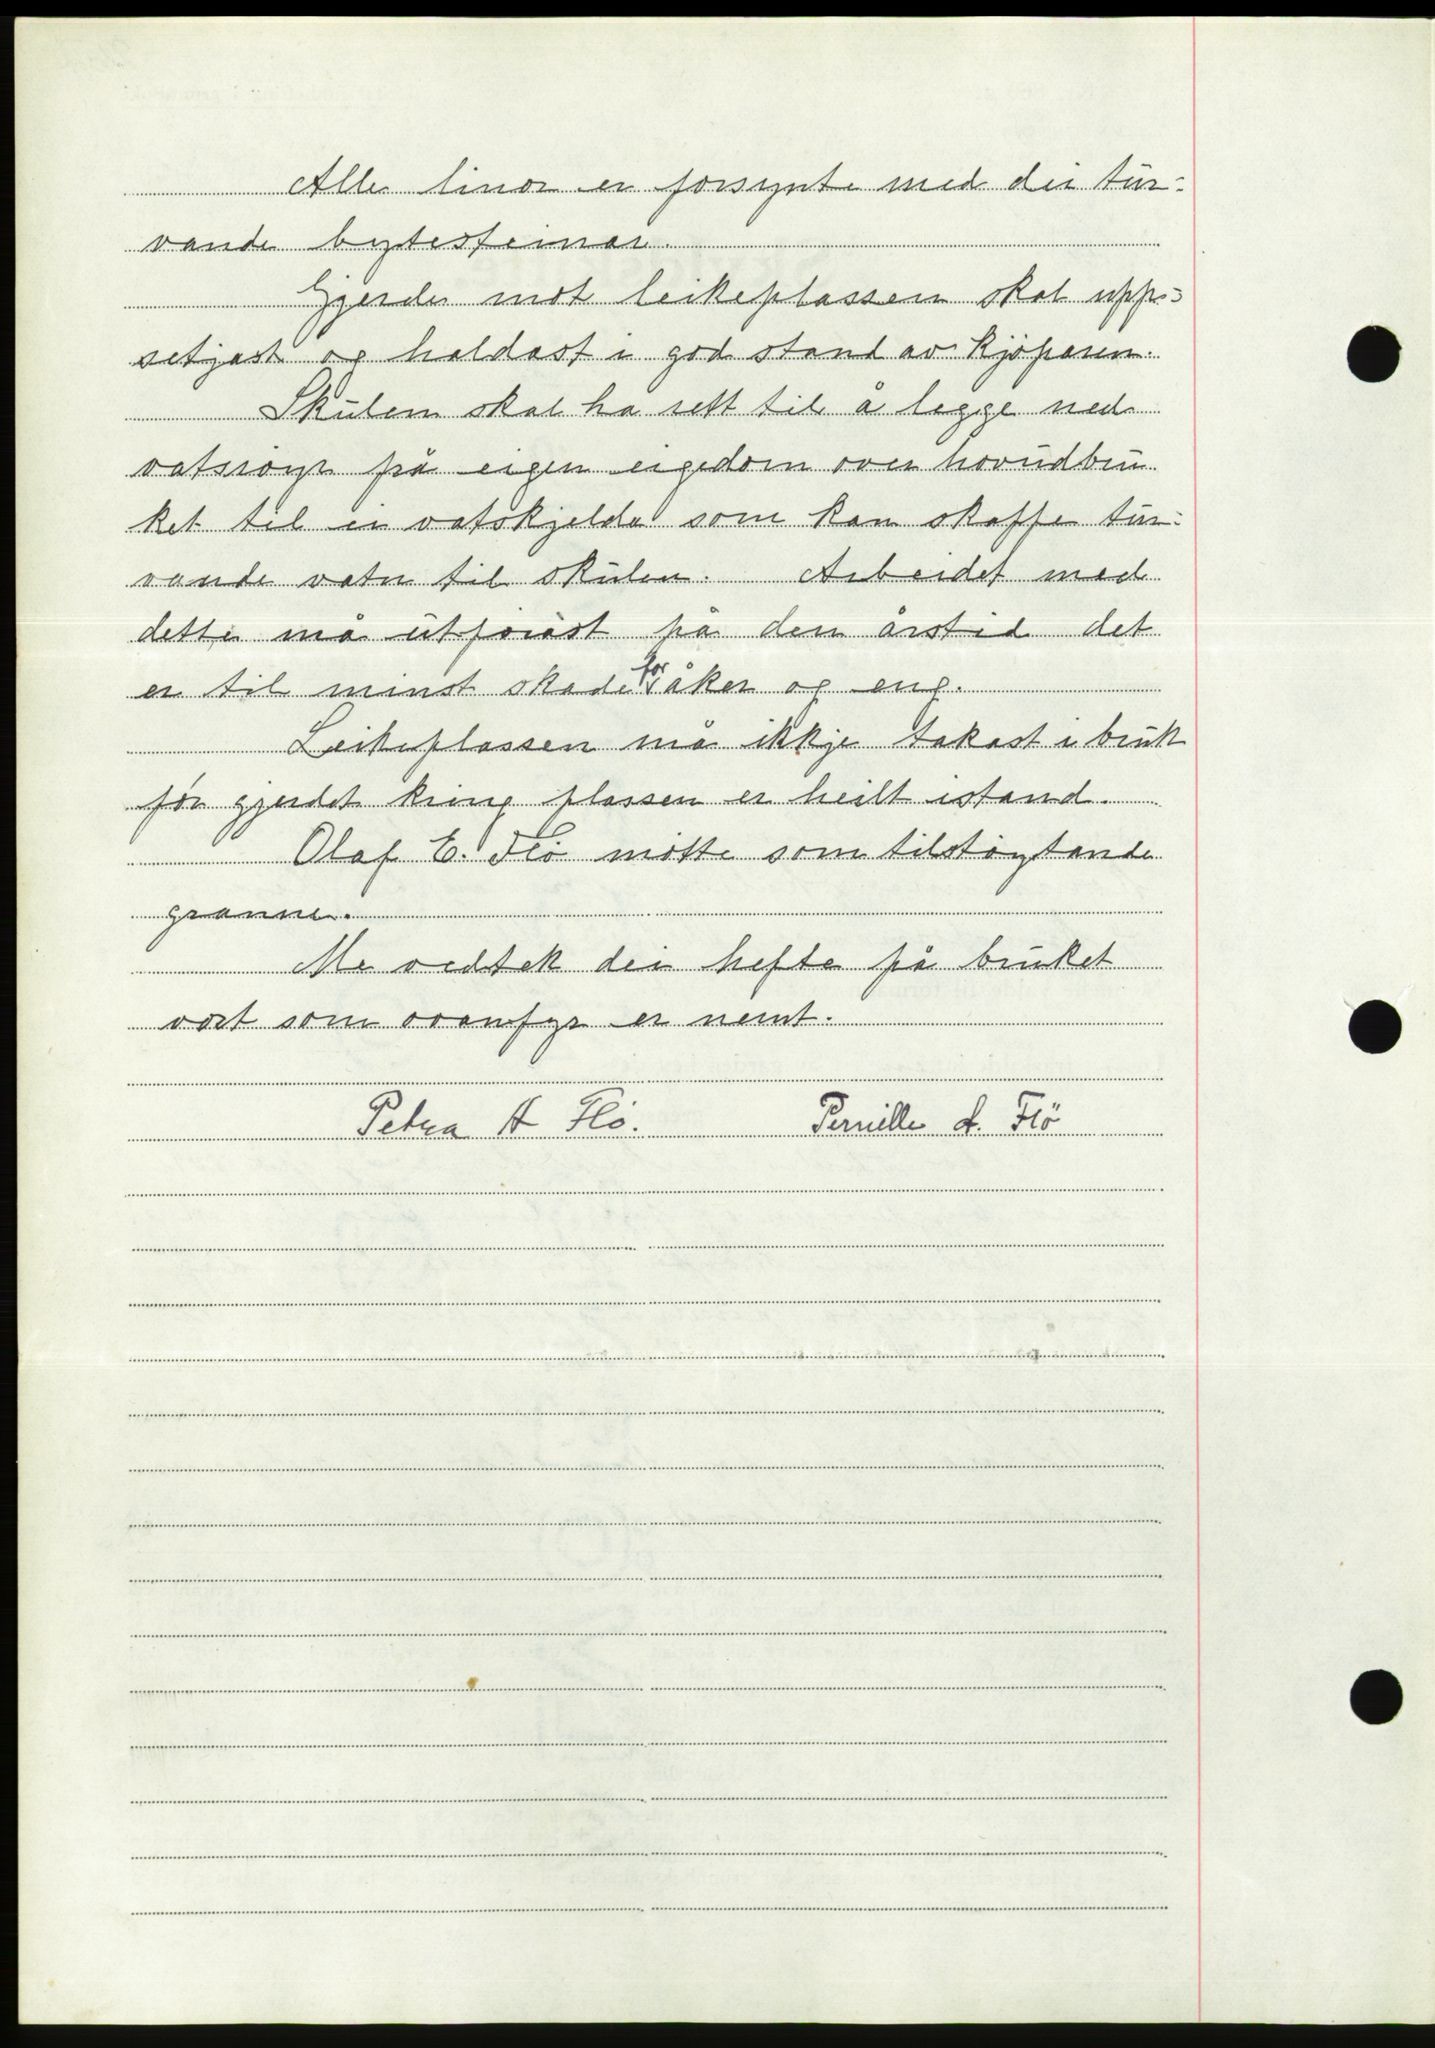 Alle linor er forsynte med dei tur-
vande bytesteinar.
Gjerde mot leikeplassen skal upp-
setjast og haldast i god stand av kjøparen.
Skulen skal ha rett til å legge ned
vatsrøyr på eigen eigedom over hovudbru
ket til ei vatskjelda som kan skaffe tur-
vande vatn til skulen. Arbeidet med
dette må utførast på den årstid det
er til minst skade for åker og eng.
Leikeplassen må ikkje takast i bruk
før gjerdet kring plassen er heilt istand.
Olaf E. Flø møtte som tilstøytande
granne.
Me vedtek dei hefte på bruket
vårt som ovanfyr er nemt.
Petra A Flö. Pernille A. Flö